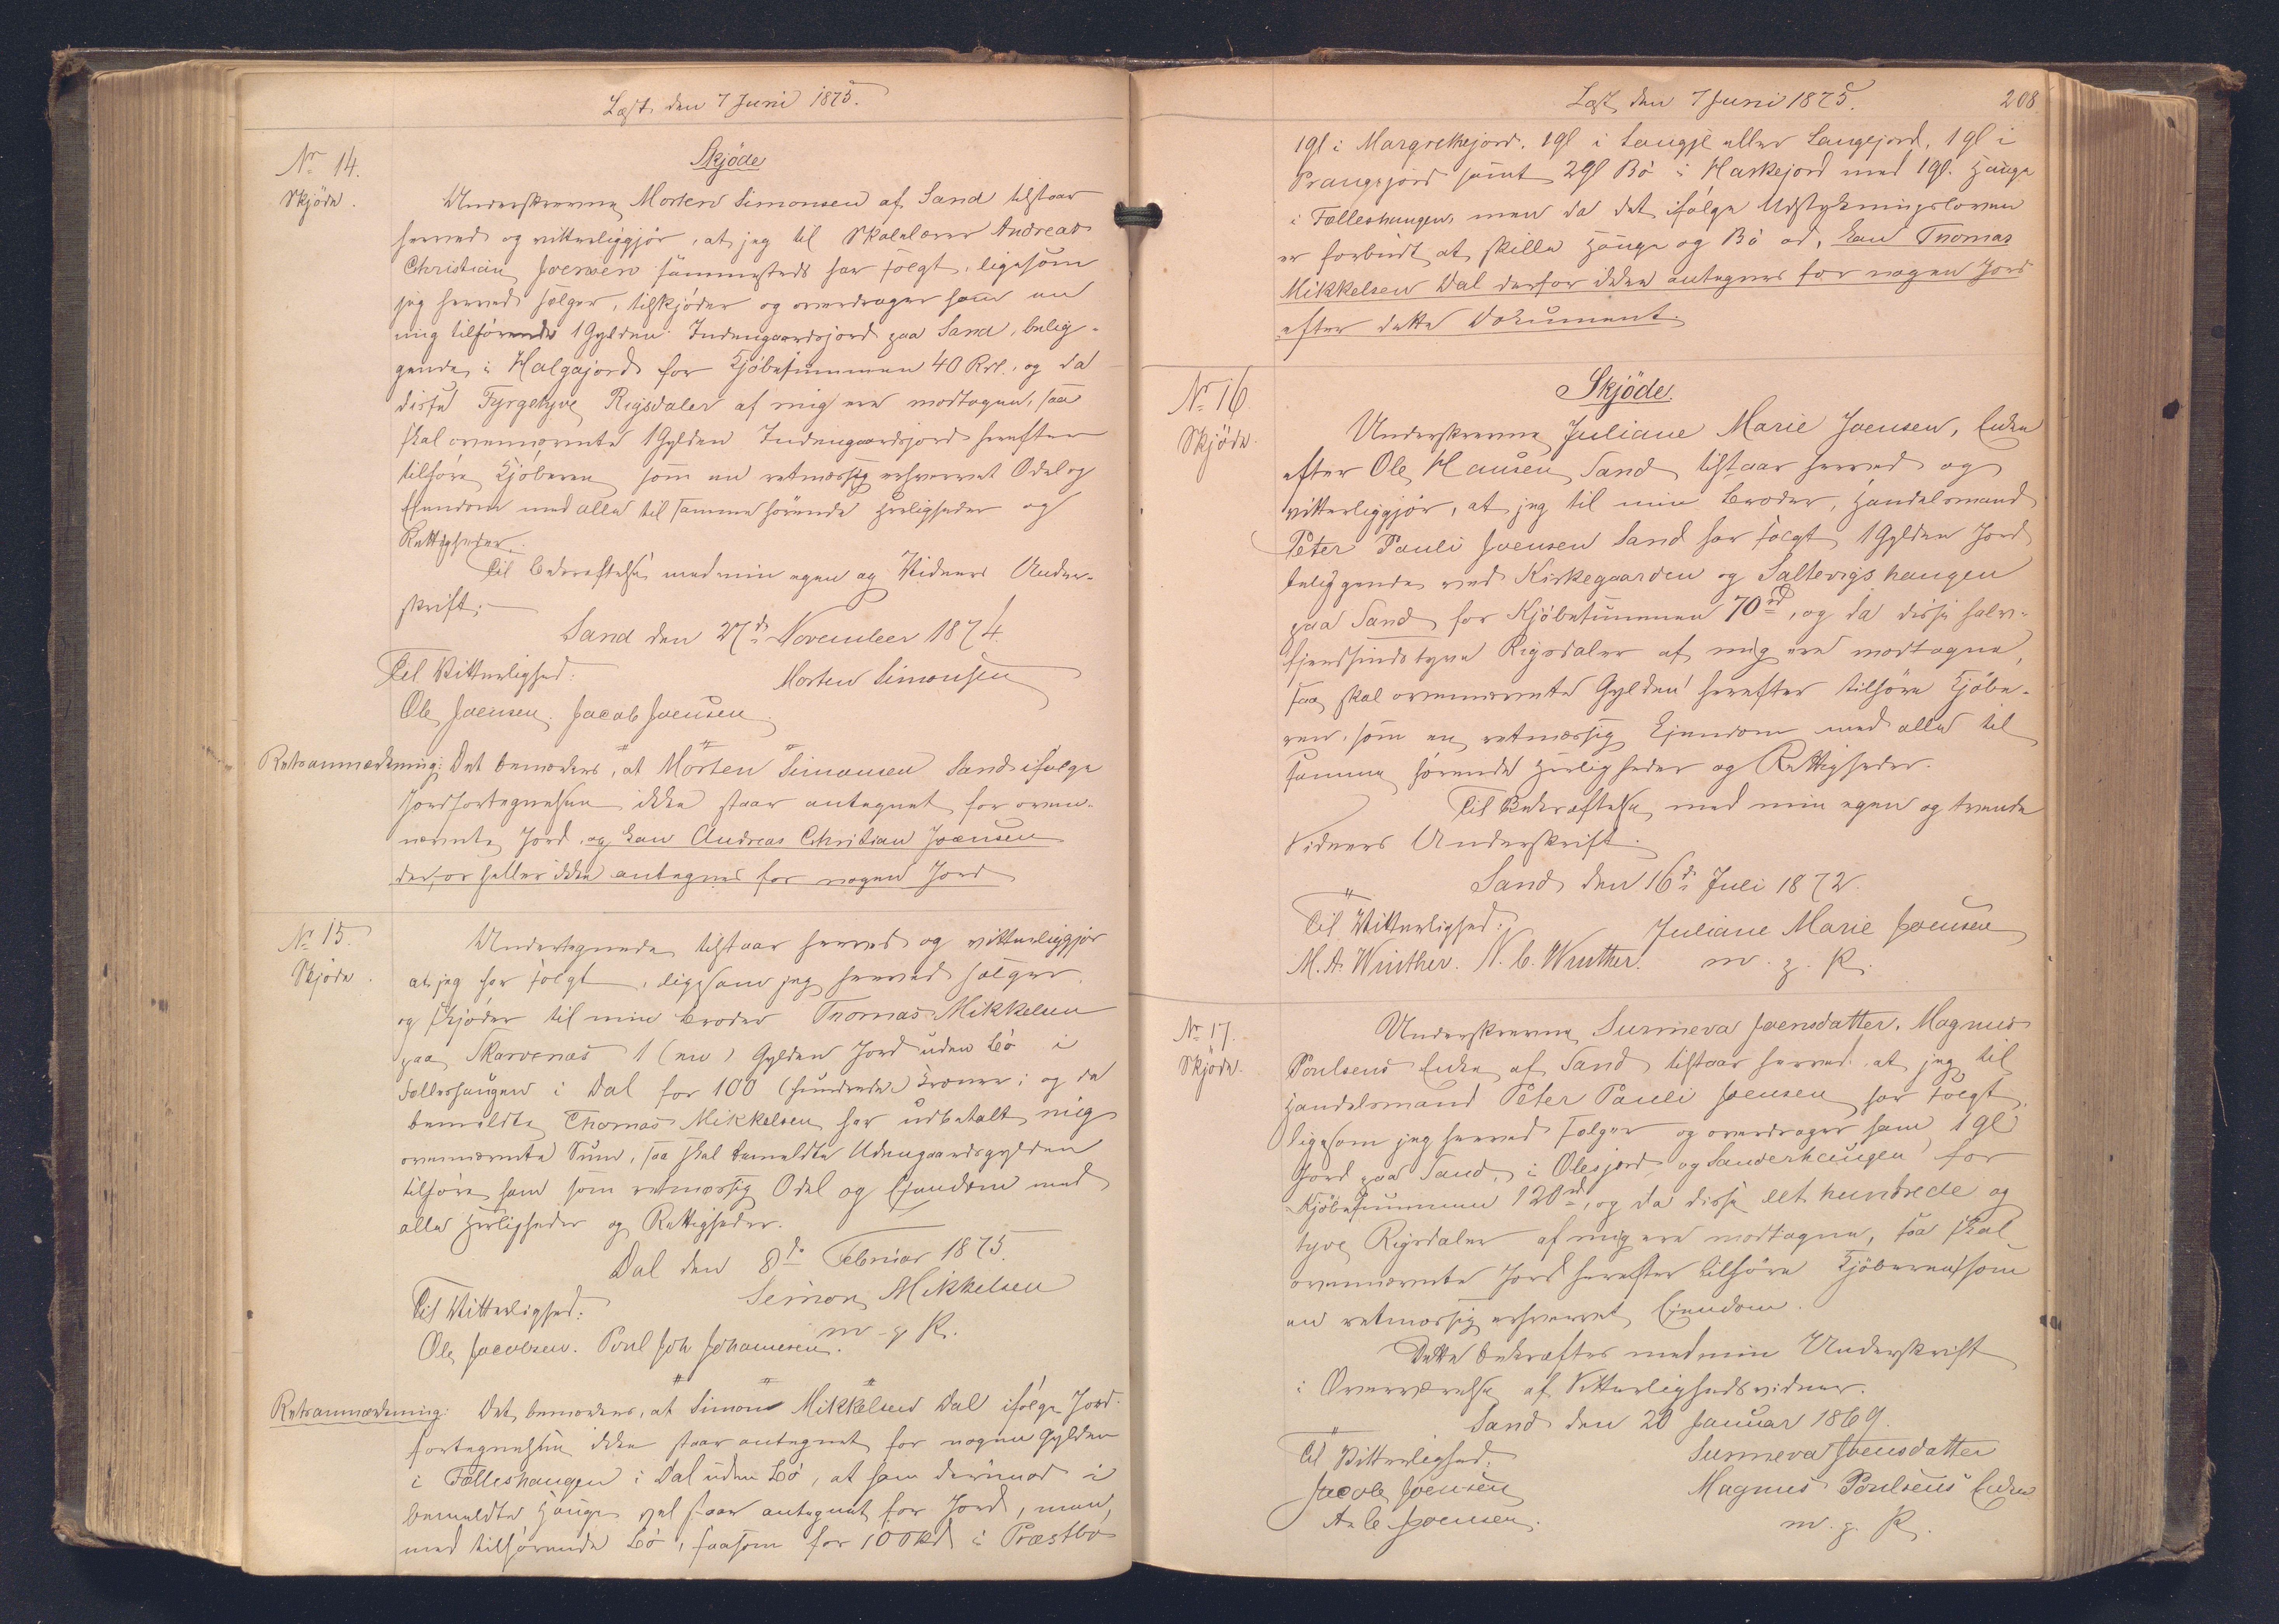 Læst den 7 Juni 1875.
No 14.
Skjöde.
Skjöde
Underskrevne Morten Simonsen af Sand tilstaar
herved og vitterliggjör, at jeg til Skolelærer Andreas
Christian Joensen sammesteds har solgt, ligesom
jeg herved sælger, tilskjöder og overdrager ham en
mig tilhörende 1 Gylden Indengaardsjord paa Sand, belig-
gende i Halgajord for Kjöbesummen 40 Rdl., og da
disse Fyrgetyve Rigsdaler af mig ere modtagne, saa
skal ovennævnte 1 Gylden Indengaardsjord herefter
tilhöre Kjöberen som en retmæssig erhvervet Odel og
Ejendom med alle til samme hörende Herligheder og
Rettigheder.
Til Bekræftelse med min egen og Vidners Under-
skrift:
Sand den 27de November 1874.
Til Vitterlighed:
Morten Simonsen
Ole Joensen. Jacob Joensen
Retsanmærkning: Det bemærkes, at Morten Simonsen Sand ifölge
Jordfortegnelsen ikke staar antegnet for oven-
nævnte Jord, og kan Andreas Christian Joensen
derfor heller ikke antegnes for nogen Jord
No 15.
Skjöde.
Undertegnede tilstaar herved og vitterliggjör
at jeg har solgt, ligesom jeg herved sælger
og skjöder til min Broder Thomas Mikkelsen
paa Skarvenæs 1 (en) Gylden Jord uden Bö i
Felleshaugen i Dal for 100 (hundrede) Kroner; og da
bemeldte Thomas Mikkelsen har udbetalt mig
ovennævnte Sum, saa skal bemeldte Udengaardsgylden
tilhöre ham som retmæssig Odel og Ejendom med
alle Herligheder og Rettigheder.
Dal den 8de Februar 1875.
Simon Mikkelsen
Til Vitterlighed:
m. p. K.
Ole Jacobsen. Poul Joh Johannesen.
Retsanmærkning: Det bemærkes, at Simon Mikkelsen Dal ifölge Jord-
fortegnelsen ikke staar antegnet for nogen Gylden
i Fælleshaugen i Dal uden Bö, at han derimod i
bemeldte Hauge vel staar antegnet for Jord, men,
med tilhörende Bö, saasom for i Præstbö
Læst den 7 Juni 1875.
208
1 gl i Margrethejord. 1 gl i Langjl eller Langejord, 1 gl i
Prangsjord samt 2 gl Bö i Harkejord med 1 gl. Hauge
i Fælleshaugen, men da det ifölge Udstykningsloven
er forbudt at skille Hauge og Bö ad, kan Thomas
Mikkelsen Dal derfor ikke antegnes for nogen Jord
efter dette Dokument.
No 16
Skjöde.
Skjöde.
Underskrevne Juliane Marie Joensen, Enke
efter Ole Hansen Sand tilstaar herved og
vitterliggjör, at jeg til min Broder, Handelsmand
Peter Pauli Joensen Sand har solgt 1 Gylden Jord
beliggende ved Kirkegaarden og Saltevigshaugen
paa Sand for Kjöbesummen 70 rd, og da disse halv-
fjerdsindstyve Rigsdaler af mig ere modtagne,
saa skal ovennævnte Gylden herefter tilhöre Kjöbe-
ren, som en retmæssig Ejendom med alle til
samme hörende Herligheder og Rettigheder.
Til Bekræftelse med min egen og tvende
Vidners Underskrift.
Sand den 16de Juli 1872.
Til Vitterlighed:
Juliane Marie Joensen
M. A. Winther. N. C. Winther.
m. p. K.
No 17.
Skjöde.
Underskrevne Sunneva Joensdatter, Magnus
Poulsens Enke af Sand tilstaar herved at jeg til
Handelsmand Peter Pauli Joensen har solgt,
ligesom jeg herved sælger og overdrager ham 1 gl
Jord paa Sand, i Olesjord og Sanderhaugen for
Kjöbesummen 120 rd, og da disse eet hundrede og
tyve Rigsdaler af mig ere modtagne, saa skal
ovennævnte Jord herefter tilhöre Kjöberen som
en retmæssig erhvervet Ejendom.
Dette bekræftes med min Underskrift
i Overværelse af Vitterlighedsvidner.
Sand den 20 Januar 1869.
Til Vitterlighed:
Sunneva Joensdatter
Jacob Joensen
Magnus Poulsens Enke
A. C. Joensen.
m. p. K.